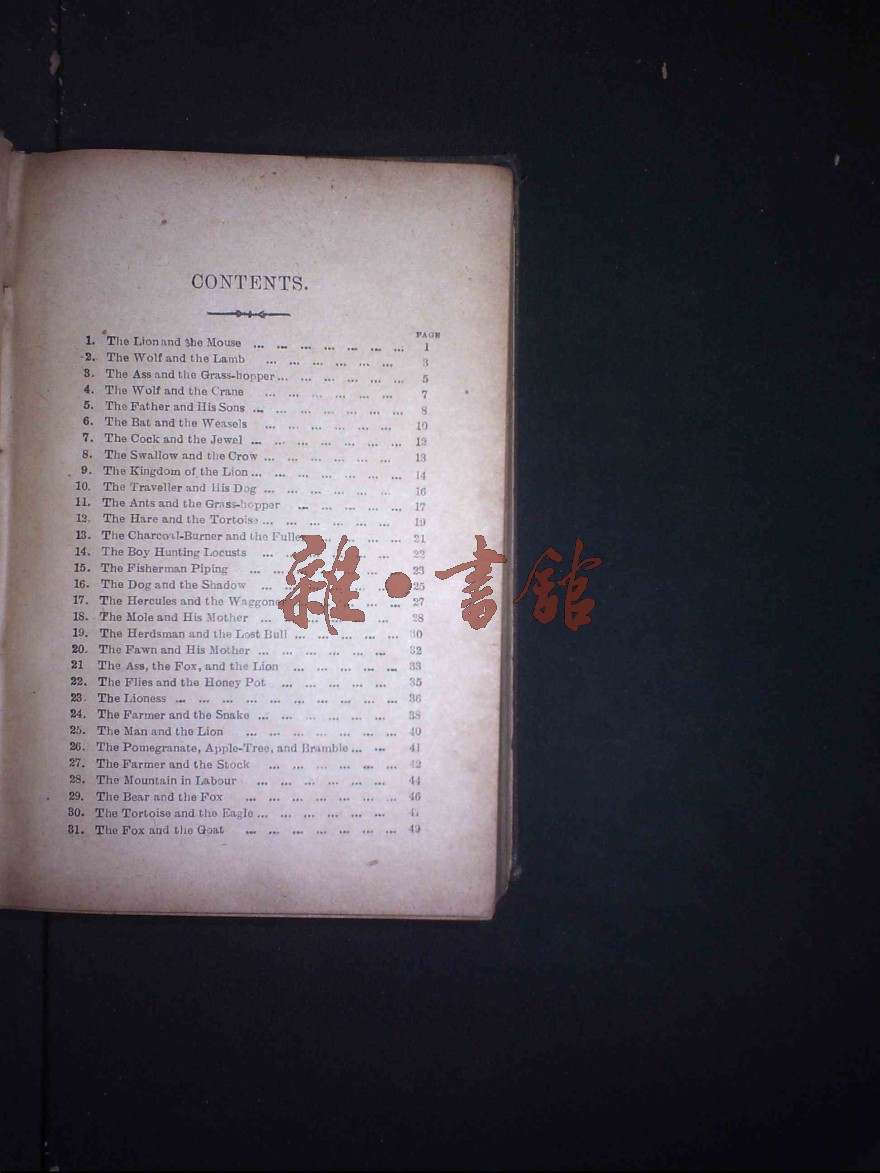 CONTENTS.
PAGE
1. The Lion and the Mouse ... ... ... ... ... ... ... 1
2. The Wolf and the Lamb ... ... ... ... ... ... 3
3. The Ass and the Grass-hopper ... ... ... ... ... ... 5
4. The Wolf and the Crane ... ... ... ... ... ... 7
5. The Father and His Sons ... ... ... ... ... ... ... 8
6. The Bat and the Weasels ... ... ... ... ... ... 10
7. The Cock and the Jewel ... ... ... ... ... ... ... 12
8. The Swallow and the Crow ... ... ... ... ... ... 13
9. The Kingdom of the Lion ... ... ... ... ... ... ... 14
10. The Traveller and His Dog ... ... ... ... ... ... 16
11. The Ants and the Grass-hopper ... ... ... ... ... 17
12. The Hare and the Tortoise ... ... ... ... ... ... 19
13. The Charcoal-Burner and the Fuller ... ... ... ... 21
14. The Boy Hunting Locusts ... ... ... ... ... ... 22
15. The Fisherman Piping ... ... ... ... ... ... 23
16. The Dog and the Shadow ... ... ... ... ... ... 25
17. The Hercules and the Waggoner ... ... ... ... ... 27
18. The Mole and His Mother ... ... ... ... ... ... 28
19. The Herdsman and the Lost Bull ... ... ... ... ... 30
20. The Fawn and His Mother ... ... ... ... ... ... 32
21 The Ass, the Fox, and the Lion ... ... ... ... ... 33
22. The Flies and the Honey Pot ... ... ... ... ... 35
23. The Lioness ... ... ... ... ... ... ... ... ... ... 36
24. The Farmer and the Snake ... ... ... ... ... ... 38
25. The Man and the Lion ... ... ... ... ... ... ... 40
26. The Pomegranate, Apple-Tree, and Bramble ... ... 41
27. The Farmer and the Stock ... ... ... ... ... ... 42
28. The Mountain in Labour ... ... ... ... ... ... 44
29. The Bear and the Fox ... ... ... ... ... ... ... 46
30. The Tortoise and the Eagle ... ... ... ... ... ... 47
31. The Fox and the Goat ... ... ... ... ... ... ... 49
雜·書館